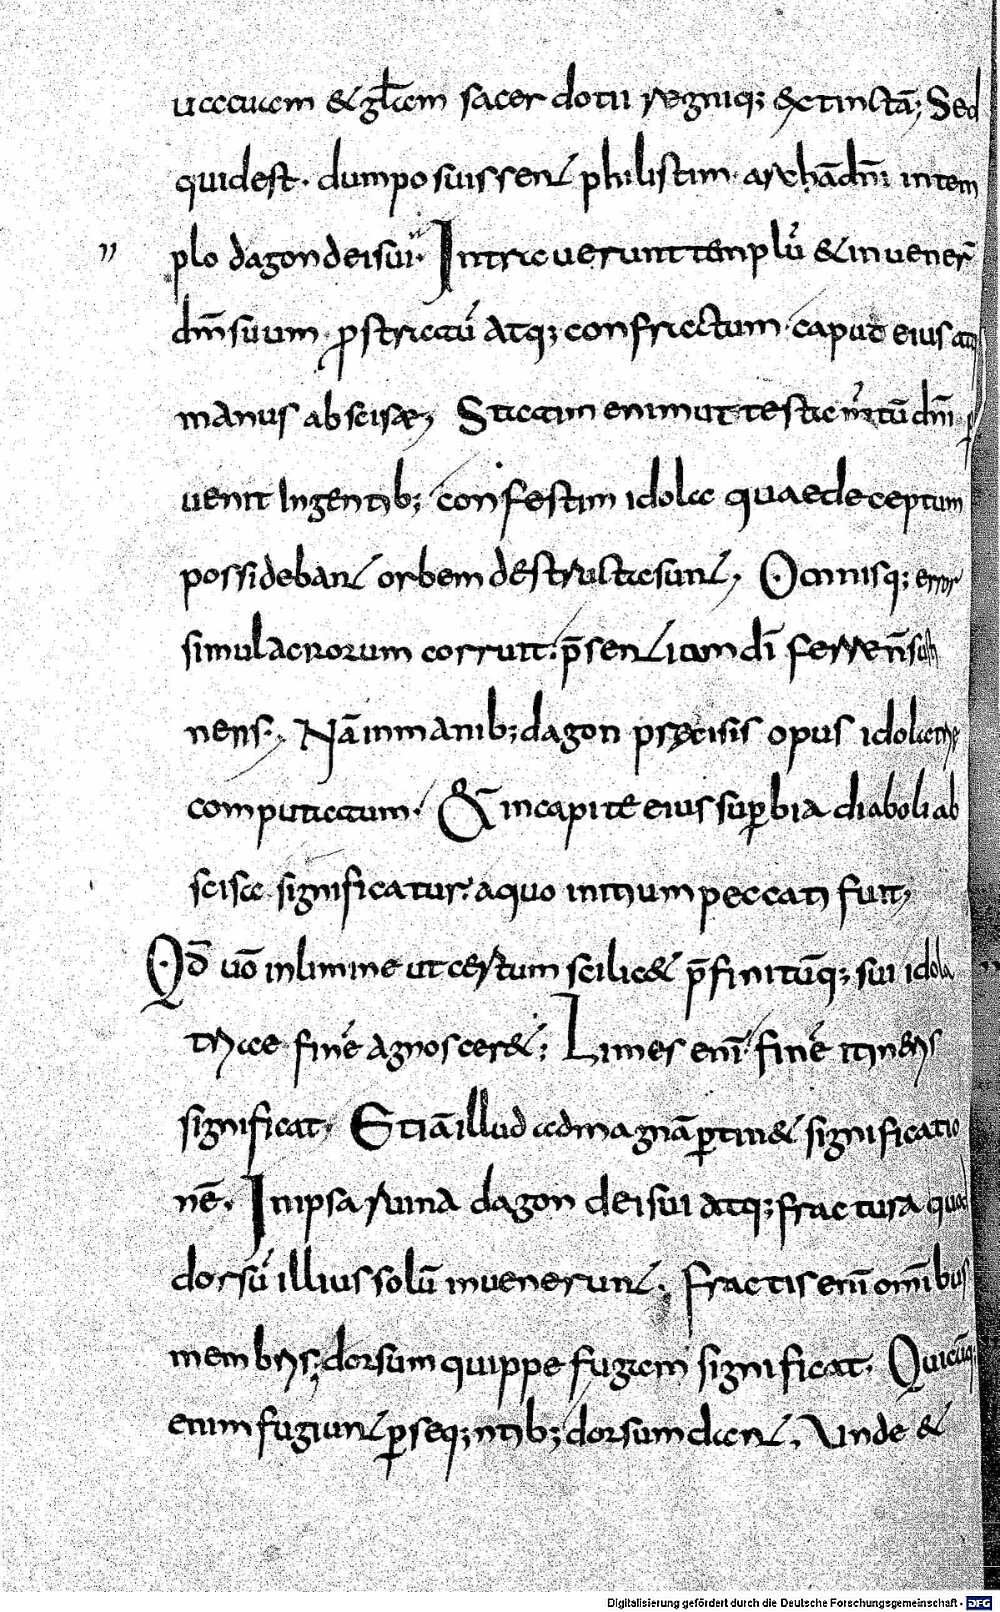 uacuam & gl̅am sacerdotii regniq; extinctā; Sed
quid est· dum posuissent philistim· archā dn̅i in tem
plo dagon dei sui· Intrauerunt templū & inuener̅
dm̅ suum· prostratū atq; confractum· caput eius atq;
manus abscisae; Statim enim ut testam̅tū dn̅i p̲
uenit In gentib; confestim idola quae deceptum
possidebant orbem destructa sunt; Omnisq; error
simulacrorum corruit· p̅sentiam dī ferre n̅ susti
nens; Nā in manib; dagon pręcisis opus idolatriae
computatum· & in capite eius sup̲bia diaboli ab
scisa significatur· a quo initium peccati fuit;
Qd̅ uō in limine ut certum scilic& p̅finitūq; sui idola
triae finē agnoscer&; Limes enī finē itineris
significat; Etiā illud ad magnā p̲tin& significatio
nē. In ipsa ruina dagon dei sui atq; fractura quod
dorsū illius solū inuenerunt; Fractis enī om̅ibus
membris; dorsum quippe fugam significat; Quicūq;
enim fugiunt p̲seq;ntib; dorsum dant; Unde &
Digitalisierung gefördert durch die Deutsche Forschungsgemeinschaft - DFG